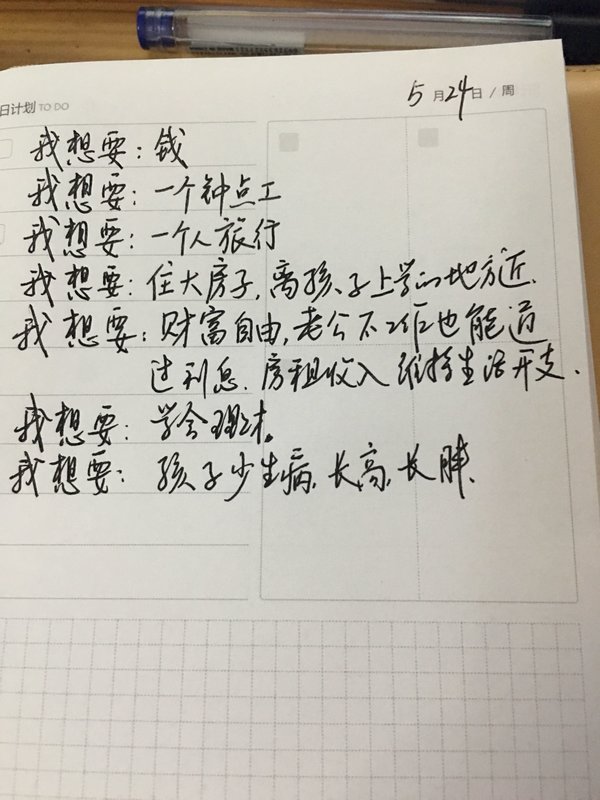 日计划 TO DO
5月24日/周
我想要：钱
我想要：一个钟点工
我想要：一个人旅行
我想要：住大房子，离孩子上学的地方近.
我想要：财富自由，老公不工作也能通
过利息．房租收入维持生活开支．
我想要：学会理财。
我想要：孩子少生病，长高，长胖．